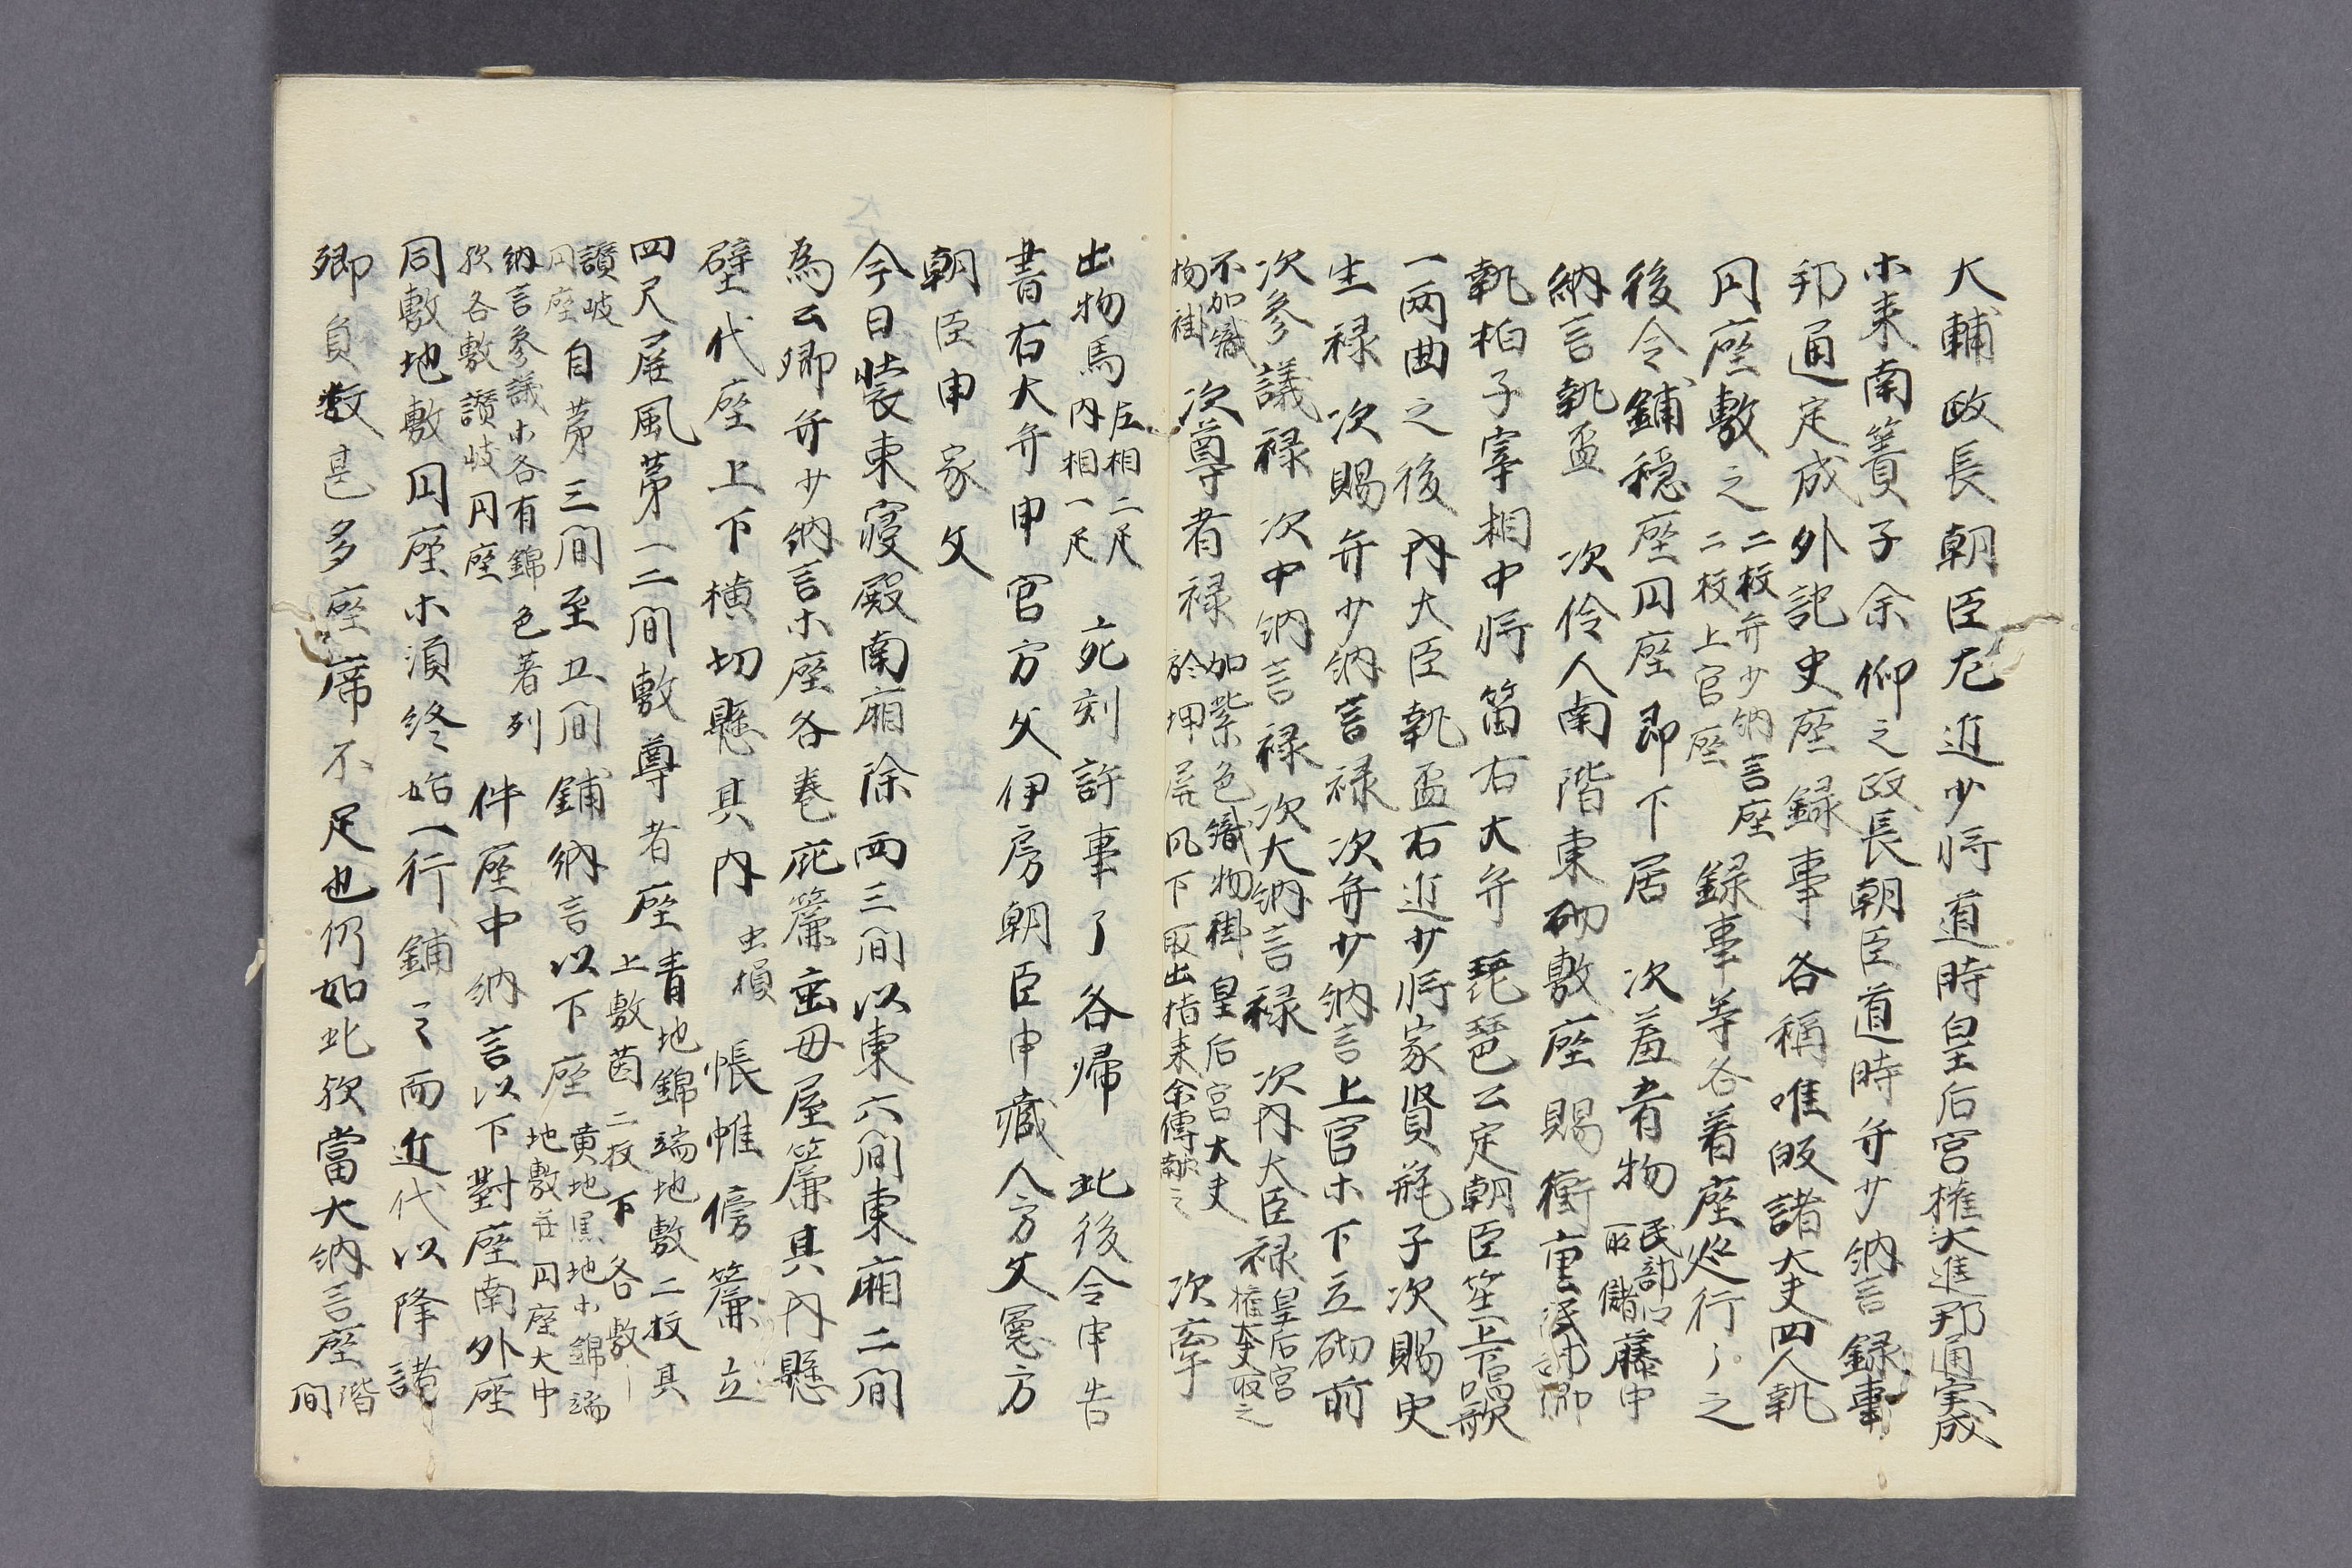 大輔政長朝臣左近少将道時皇后宮権大進邦通実成
ホ来南簀子余仰之政長朝臣道時弁少納言録事
邦通定成外記史座録事各称唯皈諸大夫四人執
円座敷之
二枚弁少納言座
二枚上官座
録事等各着座巡行了之
後令鋪穏座円座即下居 次羞肴物
民部卿
取儲藤中
納言執盃 次伶人南階東砌敷座賜衝重
執柏子宰相中将笛右大弁琵琶公定朝臣笙
一両曲之後内大臣執盃右近少将家賢瓶子次賜史
生禄次賜弁少納言禄次弁少納言上官ホ下立砌前
次参議禄 次中納言禄次大納言禄 次内大臣禄
皇后宮
権大夫取之
不加織
物褂
次尊者禄
加紫色織物褂 皇后宮大夫
於埋屏風下取出揩来余傳献之
次牽
出物馬
左相二疋
内相一疋
亥刻許事了各帰 此後令申告
書右大弁申官方文伊房朝臣申蔵人方文寛方
朝臣申家文
今日装束寝殿南廂除西三間以東六間東廂二間
為公卿弁少納言ホ座各巻庇簾垂母屋簾其内懸
壁代座上下横切懸其内
虫損
帳帷傍簾立
四尺屏風第一二間敷尊者座
青地錦端地敷二枚其
上敷茵二枚下各敷
讃岐
円座
自第三間至五間鋪納言以下座
黄地黒地ホ錦端
地敷并円座大中
納言参議ホ各有錦色著列
歟各敷讃岐円座
件座中納言以下對座南外座
同敷地敷円座ホ須終始一行鋪之而近代以降諸
卿員数甚多座席不足也仍如此歟當大納言座
階
間